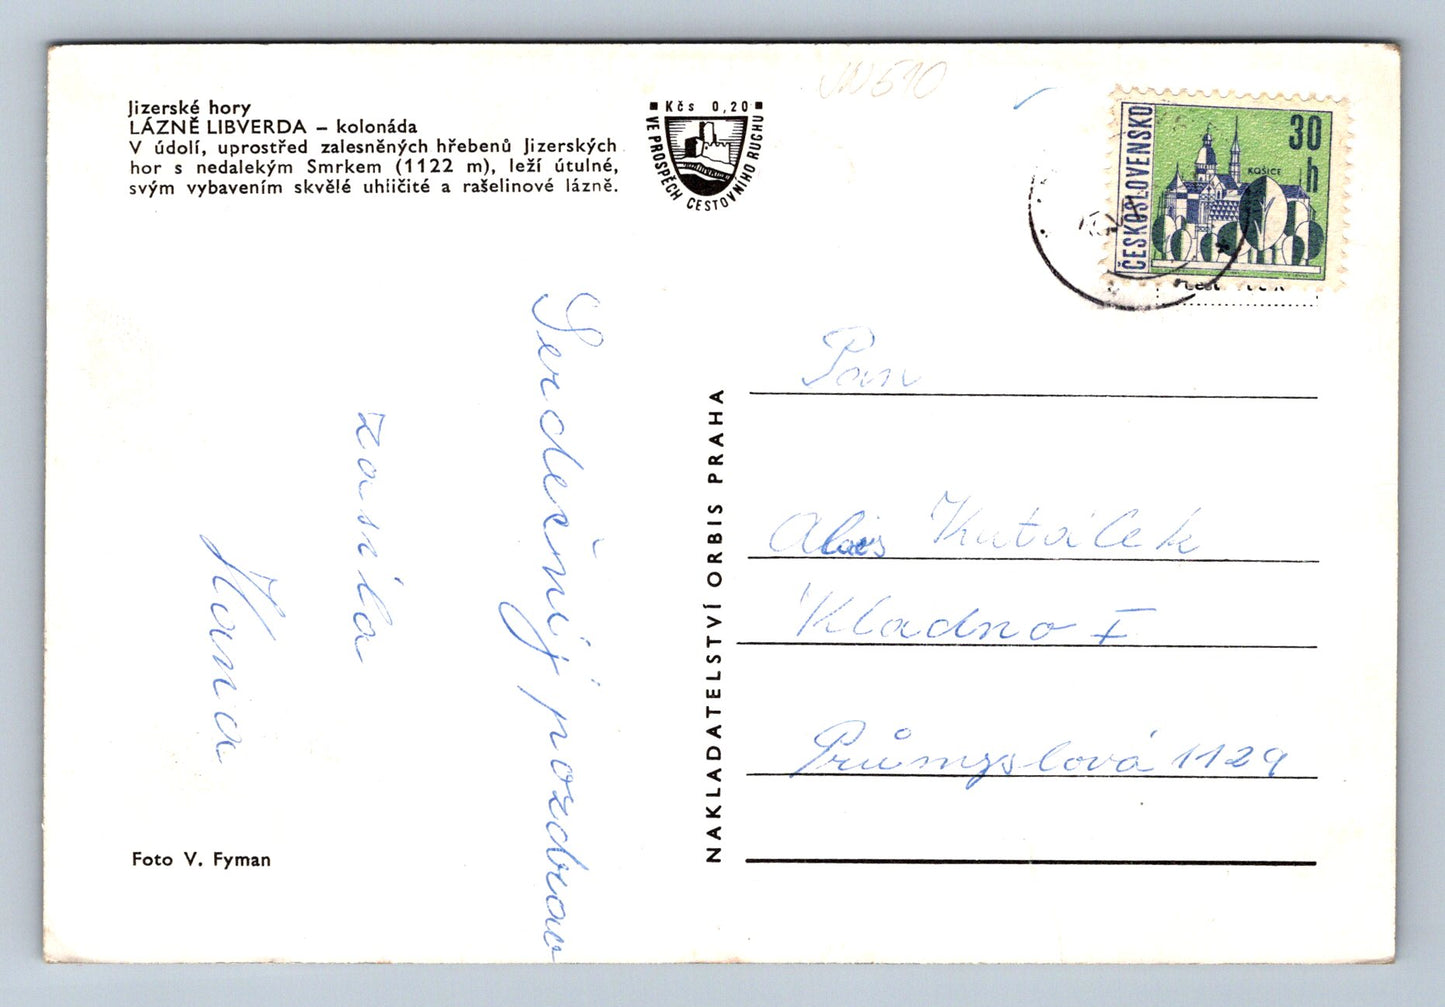 Jizerské hory
LÁZNĚ LIBVERDA – kolonáda
V údolí, uprostřed zalesněných hřebenů Jizerských
hor s nedalekým Smrkem (1122 m), leží útulné,
svým vybavením skvělé uhličité a rašelinové lázně.
Kčs 0,20
VE PROSPĚCH CESTOVNÍHO RUCHU
ČESKOSLOVENSKO
30 h
KOŠICE
Srdečný pozdrav
zasílá
Hana
NAKLADATELSTVÍ ORBIS PRAHA
Pan
Alois Kutáček
Kladno I
Průmyslová 1129
Foto V. Fyman